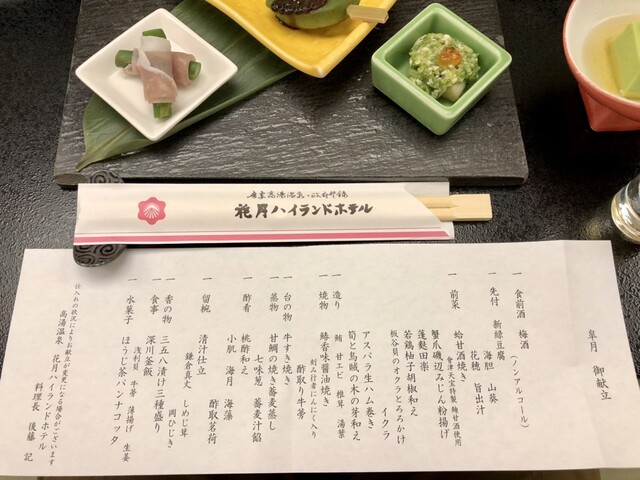 花月ハイランドホテル
皐月 御献立
一 食前酒 梅酒
(ノンアルコール)
一 先付 新緑豆腐
海胆 山葵
花穂 旨出汁
一 前菜 蛤甘酒焼き
會津天宝特製 麹甘酒使用
蟹爪磯辺みじん粉揚げ
蓬麩田楽
若鶏柚子胡椒和え
板谷貝のオクラとろろかけ
イクラ
アスパラ生ハム巻き
筍と烏賊の木の芽和え
一 造り 鮪 甘エビ 椎茸 湯葉
一 焼物 鰆香味醤油焼き
刻み行者にんにく入り
酢取り牛蒡
一 台の物 牛すき焼き
一 蒸物 甘鯛の焼き蕎麦蒸し
七味葱 蕎麦汁餡
一 酢肴 桃酢和え
小肌 海月 海藻
酢取茗荷
一 留椀 清汁仕立
鎌倉真丈 しめじ茸
岡ひじき
一 香の物 三五八漬け三種盛り
一 食事 深川釜飯
浅利貝 牛蒡 薄揚げ 生姜
一 水菓子 ほうじ茶パンナコッタ
仕入れの状況により献立が変更になる場合がございます
高湯温泉 花月ハイランドホテル
料理長 後藤 記